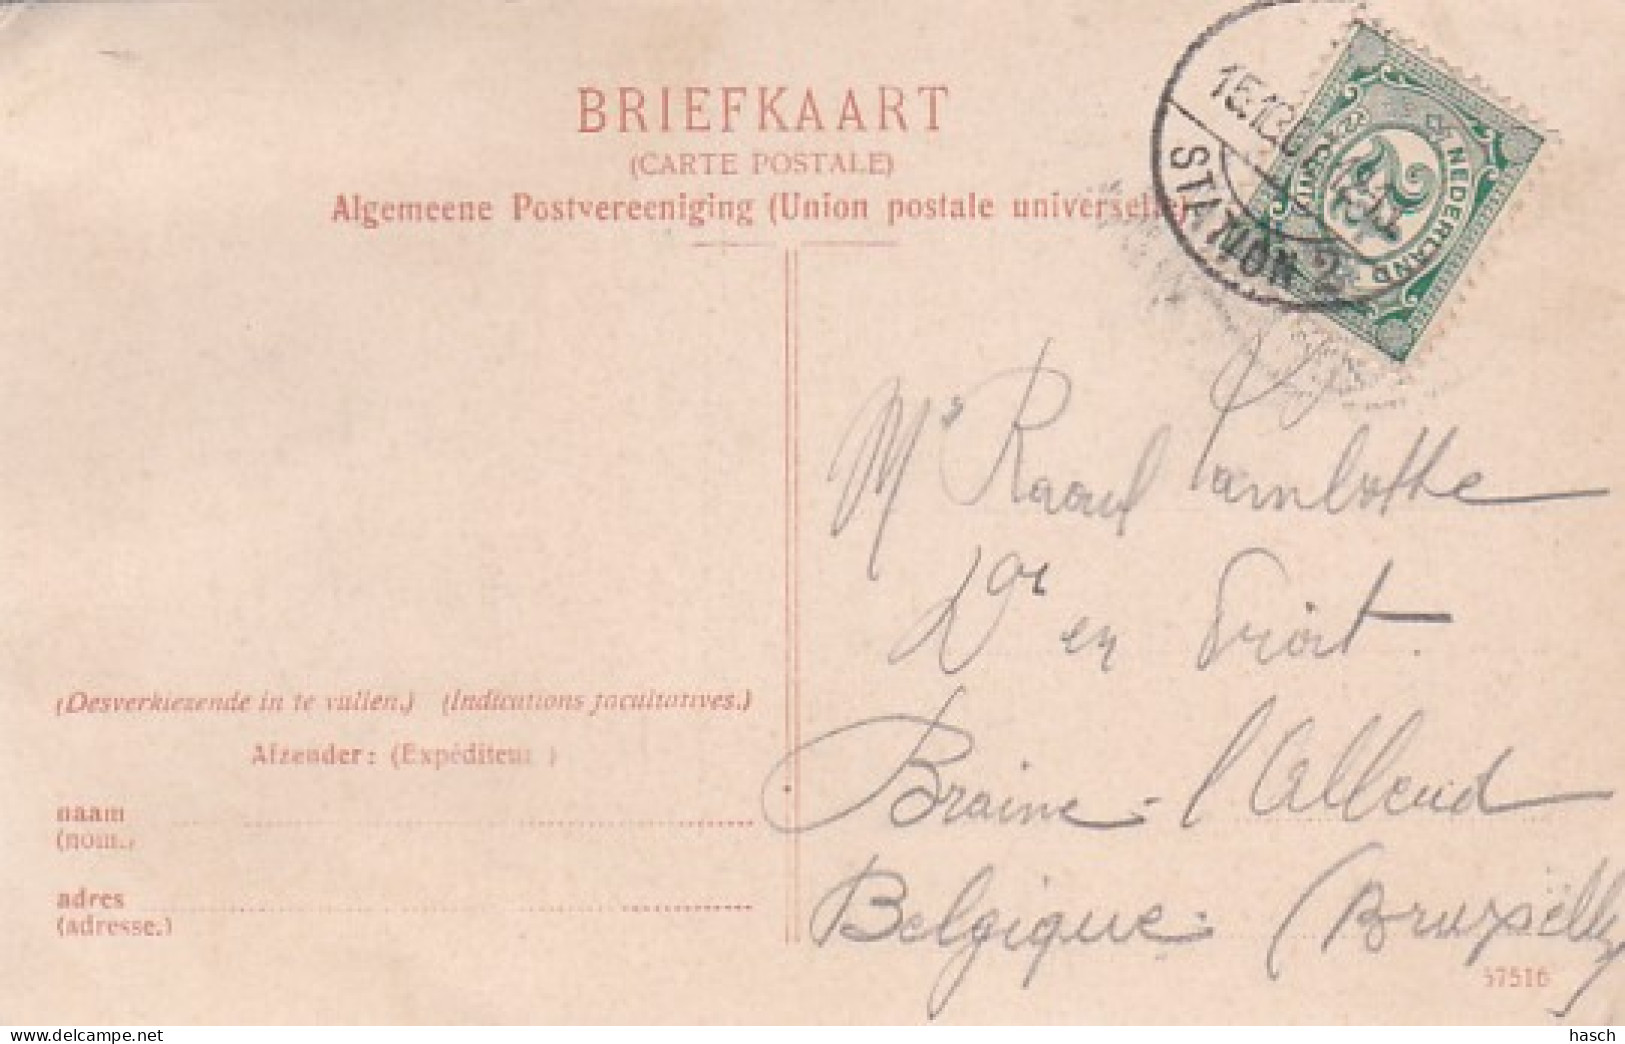 BRIEFKAART
(CARTE POSTALE)
Algemeene Postvereeniging (Union postale universelle)
STATION 2
NEDERLAND
Mr Raoul
Dor en Droit.
Braine-l'Alleud
Belgique. (Bruxelles
(Desverkiezende in te vullen.) (Indications facultatives.)
Afzender: (Expéditeur )
naam
(nom.)
adres
(adresse.)
57516
hasch